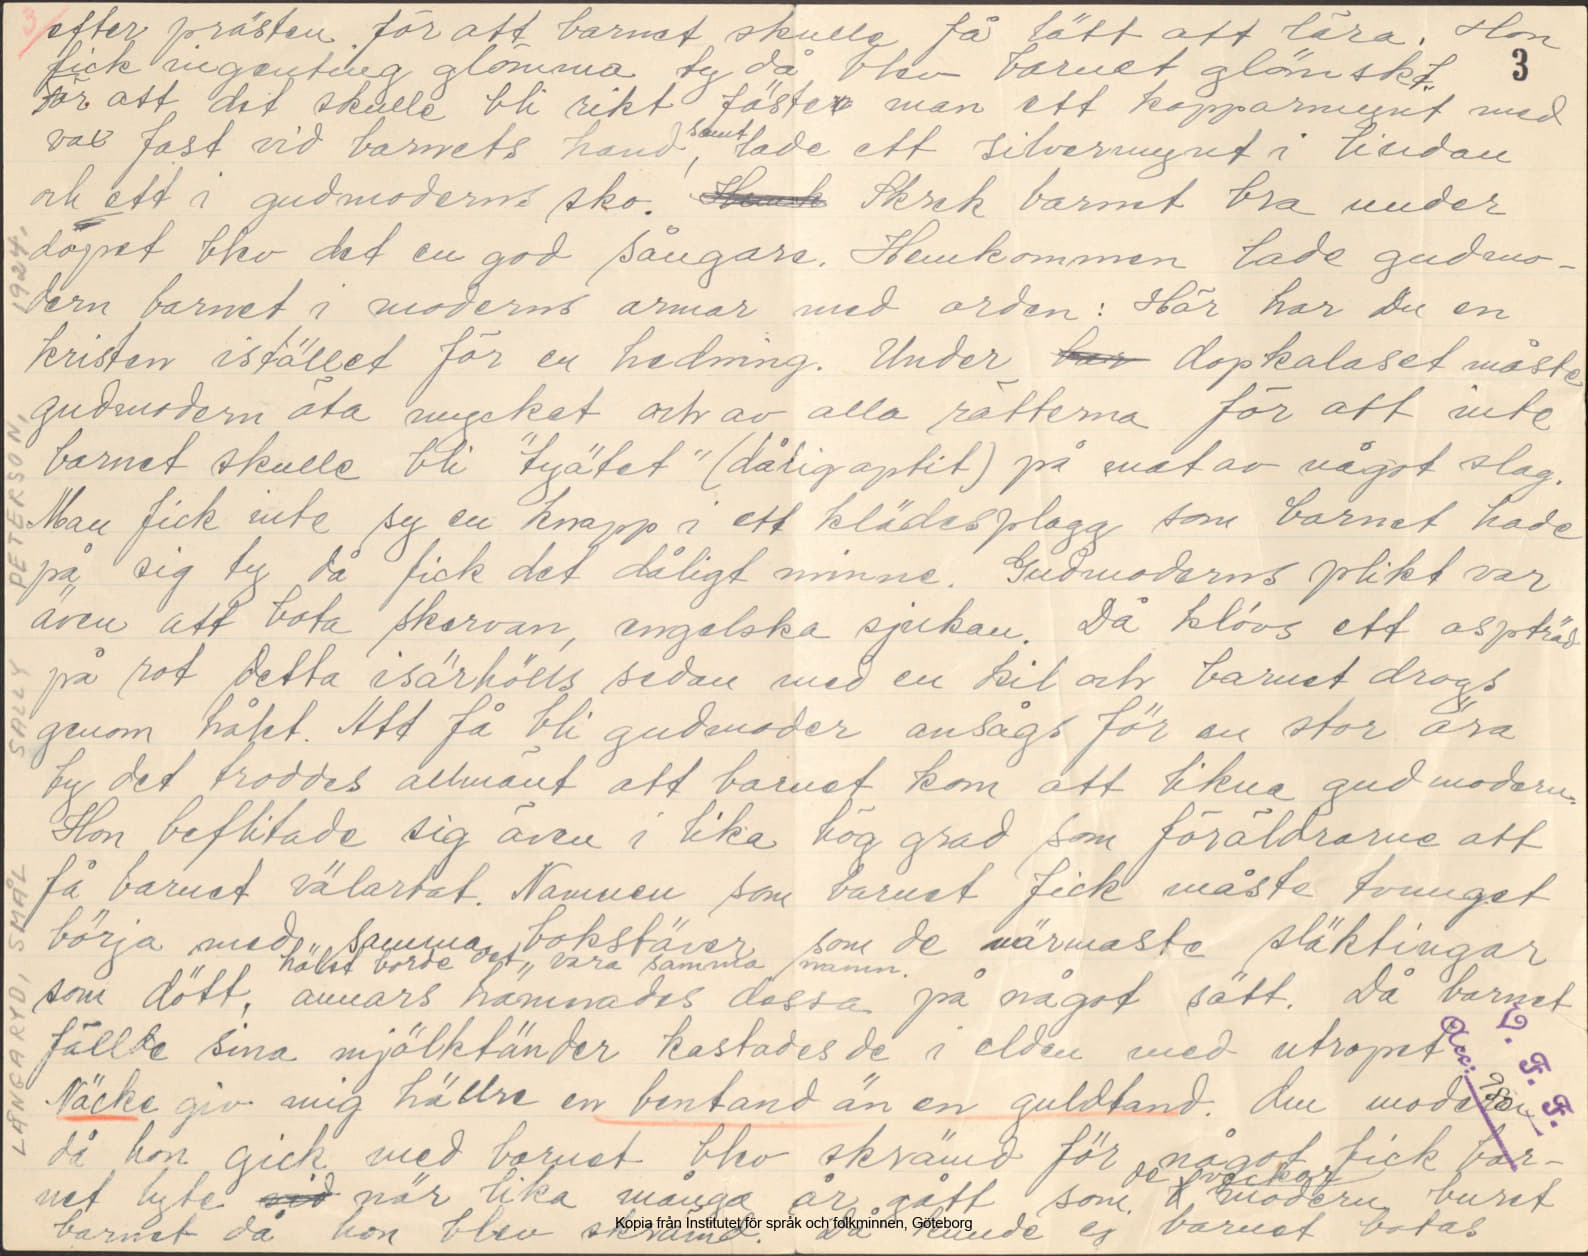 3
3
efter prästen för att barnet skulle få lätt att lära. Hon
fick ingenting glömma ty då blev barnet glömskt.
För att det skulle bli rikt fäste man ett kopparmynt med
vax fast vid barnets hand, samt lade ett silvermynt i lindan
och ett i gudmoderns sko. Skrek barnet bra under
dopet blev det en god sångare. Hemkommen lade gudmo-
dern barnet i moderns armar med orden: Här har Du en
kristen istället för en hedning. Under dopkalaset måste
gudmodern äta mycket och av alla rätterna för att inte
barnet skulle bli "tyätet" (dålig aptit) på mat av något slag.
Man fick inte sy en knapp i ett klädesplagg som barnet hade
på sig ty då fick det dåligt minne. Gudmoderns plikt var
även att bota skervan, engelska sjukan. Då klövs ett aspträd
på rot detta isärhölls sedan med en kil och barnet drogs
genom hålet. Att få bli gudmoder ansågs för en stor ära
ty det troddes allmänt att barnet kom att likna gudmodern.
Hon beflitade sig även i lika hög grad som föräldrarne att
få barnet välartat. Namnen som barnet fick måste tvunget
börja med samma bokstäver som de närmaste släktingar
hälst borde det vara samma namn.
som dött, annars hämnades dessa på något sätt. Då barnet
fällde sina mjölktänder kastades de i elden med utropet
Näcke giv mig hällre en bentand än en guldtand. Om modern
då hon gick med barnet blev skrämd för något fick bar-
net lyte när lika många år gått som de veckor modern buret
barnet då hon blev skrämd. Då kunde ej barnet botas
LÅNGARYD, SMÅL SALLY PETERSON, 1924.
V. F. F.
Acc:
Kopia från Institutet för språk och folkminnen, Göteborg